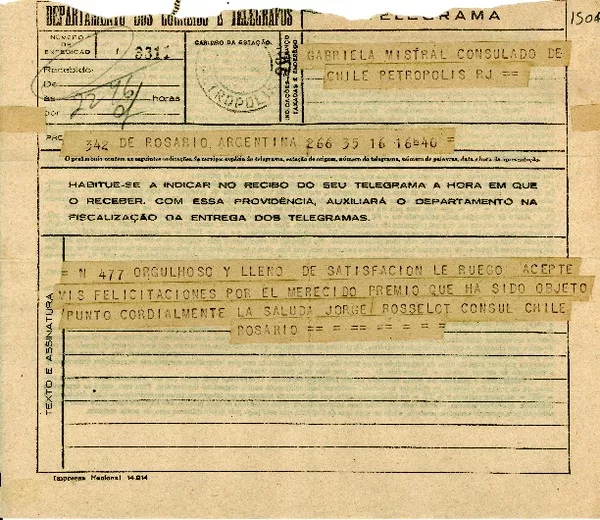 DEPARTAMENTO DOS CORREIOS E TELEGRAFOS
TELEGRAMA
1504
NÚMERO DE EXPEDIÇÃO
3311
CARIMBO DA ESTAÇÃO
INDICAÇÕES DE SERVIÇO TAXADAS E ENDEREÇO
GABRIELA MISTRAL CONSULADO DE
CHILE PETROPOLIS RJ ==
Recebido:
De
às horas
por
22
342 DE ROSARIO ARGENTINA 266 35 16 16H40 =
O preâmbulo contém as seguintes indicações de serviço: espécie do telegrama, estação de origem, número do telegrama, número de palavras, data e hora da apresentação.
HABITUE-SE A INDICAR NO RECIBO DO SEU TELEGRAMA A HORA EM QUE
O RECEBER. COM ESSA PROVIDÊNCIA, AUXILIARÁ O DEPARTAMENTO NA
FISCALIZAÇÃO DA ENTREGA DOS TELEGRAMAS.
TEXTO E ASSINATURA
= N 477 ORGULHOSO Y LLENO DE SATISFACION LE RUEGO ACEPTE
MIS FELICITACIONES POR EL MERECIDO PREMIO QUE HA SIDO OBJETO
PUNTO CORDIALMENTE LA SALUDA JORGE ROSSELOT CONSUL CHILE
ROSARIO == = = = = = =
Imprensa Nacional 14.014